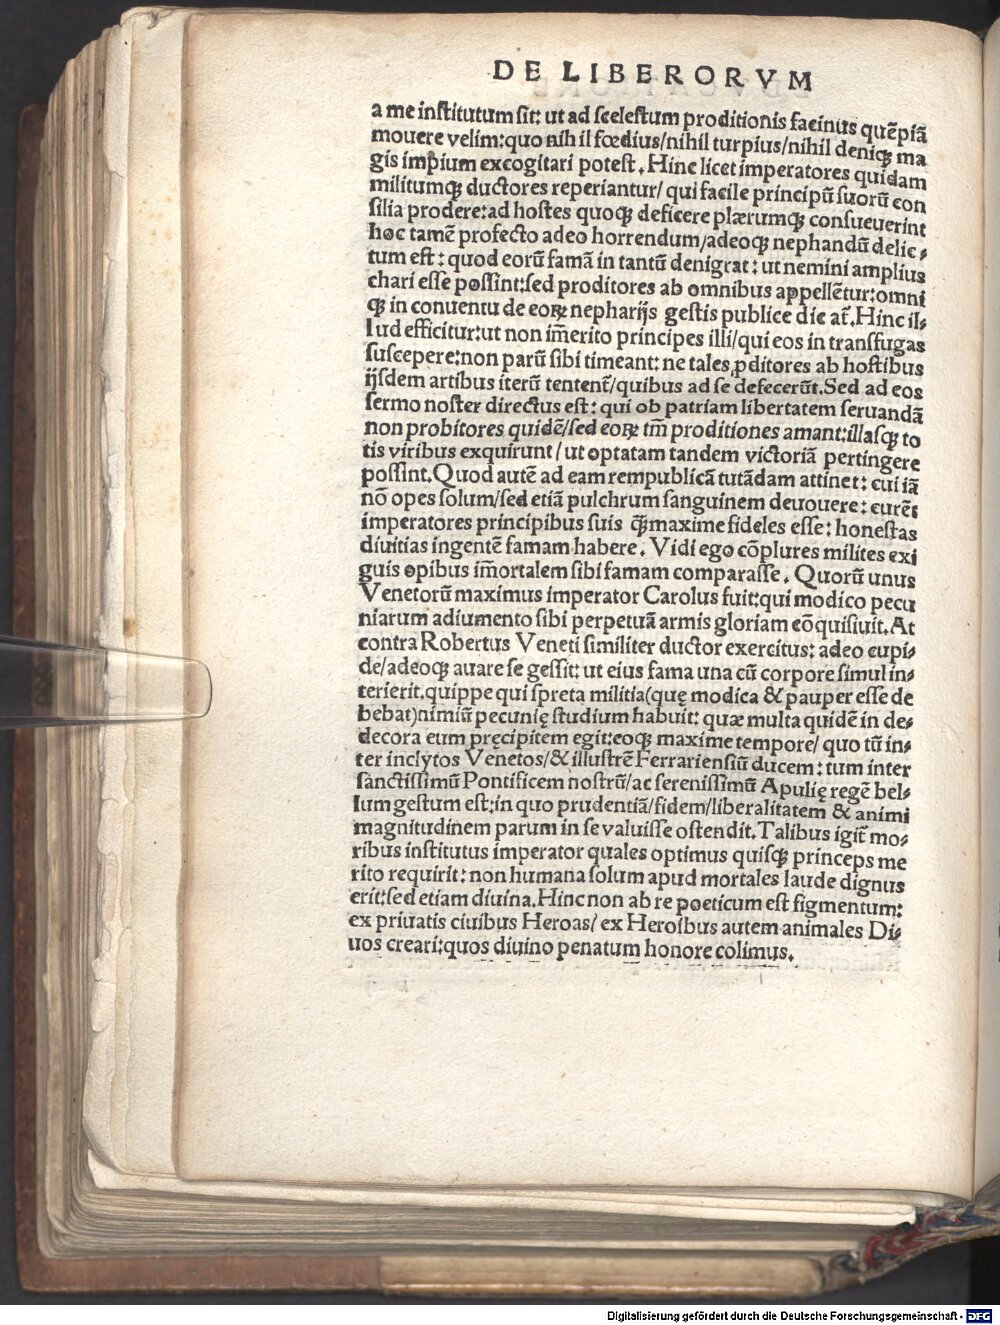 DE LIBERORVM
a me institutum sit: ut ad scelestum proditionis facinus quẽpiã
mouere velim: quo nih il fœdius/nihil turpius/nihil deniqꝫ ma
gis impium excogitari potest. Hinc licet imperatores quidam
militumqꝫ ductores reperiantur/ qui facile principũ suorũ con
silia prodere: ad hostes quoqꝫ deficere plærumqꝫ consueuerint
hoc tamẽ profecto adeo horrendum/adeoqꝫ nephandũ delic⸗
tum est: quod eorũ famã in tantũ denigrat: ut nemini amplius
chari esse possint: sed proditores ab omnibus appellẽtur: omni
qꝫ in conuentu de eoꝝ nepharijs gestis publice dic at᷑. Hinc il⸗
lud efficitur: ut non im̃erito principes illi/qui eos in transfugas
suscepere: non parũ sibi timeant: ne tales ꝓditores ab hostibus
ijsdem artibus iterũ tentent᷑/quibus ad se defecerũt. Sed ad eos
sermo noster directus est: qui ob patriam libertatem seruandã
non probitores quidẽ/sed eoꝝ tm̃ proditiones amant: illasqꝫ to
tis viribus exquirunt/ ut optatam tandem victoriã pertingere
possint. Quod autẽ ad eam rempublicã tutãdam attinet: cui iã
nõ opes solum/sed etiã pulchrum sanguinem deuouere: curẽt
imperatores principibus suis q̃ꝫmaxime fideles esse: honestas
diuitias ingentẽ famam habere. Vidi ego cõplures milites exi
guis opibus im̃ortalem sibi famam comparasse. Quorũ unus
Venetorũ maximus imperator Carolus fuit: qui modico pecu
niarum adiumento sibi perpetuã armis gloriam cõquisiuit. At
contra Robertus Veneti similiter ductor exercitus: adeo cupi⸗
de/adeoqꝫ auare se gessit: ut eius fama una cũ corpore simul in⸗
terierit. quippe qui spreta militia(quę modica & pauper esse de
bebat)nimiũ pecunię studium habuit: quæ multa quidẽ in de⸗
decora eum pręcipitem egit: eoqꝫ maxime tempore/ quo tũ in⸗
ter inclytos Venetos/& illustrẽ Ferrariensiũ ducem: tum inter
sanctissimũ Pontificem nostrũ/ac serenissimũ Apulię regẽ bel⸗
lum gestum est: in quo prudentiã/fidem/liberalitatem & animi
magnitudinem parum in se valuisse ostendit. Talibus igit᷑ mo⸗
ribus institutus imperator quales optimus quisqꝫ princeps me
rito requirit: non humana solum apud mortales laude dignus
erit: sed etiam diuina. Hinc non ab re poeticum est figmentum:
ex priuatis ciuibus Heroas/ ex Heroibus autem animales Di⸗
uos creari: quos diuino penatum honore colimus.
Digitalisierung gefördert durch die Deutsche Forschungsgemeinschaft - DFG